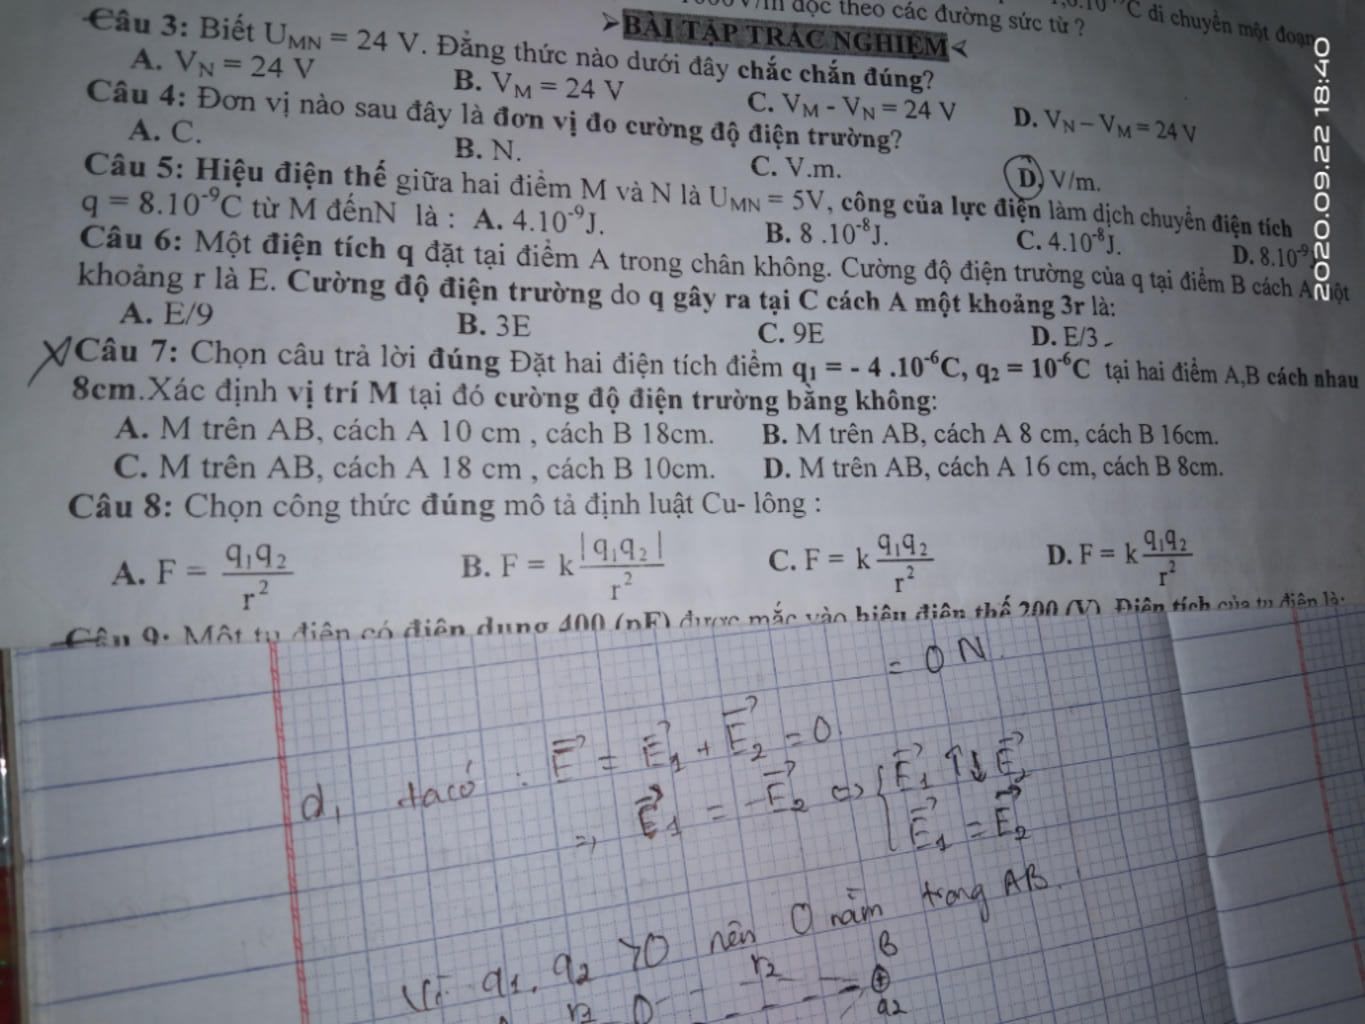 C di chuyển một đoạn
V/m dọc theo các đường sức từ ?
➢BÀI TẬP TRẮC NGHIỆM
Câu 3: Biết UMN = 24 V. Đẳng thức nào dưới đây chắc chắn đúng?
A. VN = 24 V B. VM = 24 V C. VM - VN = 24 V D. VN – VM = 24V
Câu 4: Đơn vị nào sau đây là đơn vị đo cường độ điện trường?
A. C. B. N. C. V.m. D. V/m.
Câu 5: Hiệu điện thế giữa hai điểm M và N là UMN = 5V, công của lực điện làm dịch chuyển điện tích
q = 8.10⁻⁹C từ M đếnN là : A. 4.10⁻⁹J. B. 8 .10⁻⁸J. C. 4.10⁻⁸J. D. 8.10⁻⁹
Câu 6: Một điện tích q đặt tại điểm A trong chân không. Cường độ điện trường của q tại điểm B cách A một
khoảng r là E. Cường độ điện trường do q gây ra tại C cách A một khoảng 3r là:
A. E/9 B. 3E C. 9E D. E/3
Câu 7: Chọn câu trả lời đúng Đặt hai điện tích điểm q₁ = - 4 .10⁻⁶C, q₂ = 10⁻⁶C tại hai điểm A,B cách nhau
8cm.Xác định vị trí M tại đó cường độ điện trường bằng không:
A. M trên AB, cách A 10 cm , cách B 18cm. B. M trên AB, cách A 8 cm, cách B 16cm.
C. M trên AB, cách A 18 cm , cách B 10cm. D. M trên AB, cách A 16 cm, cách B 8cm.
Câu 8: Chọn công thức đúng mô tả định luật Cu- lông :
A. F = q₁q₂/r² B. F = k|q₁q₂|/r² C. F = k q₁q₂/r² D. F = k q₁q₂/r²
Câu 9: Một tụ điện có điện dung 400 (pF) được mắc vào hiệu điện thế 200 (V). Điện tích của tụ điện là:
= 0 N
d, ta có : E⃗ = E⃗₁ + E⃗₂ = 0
=> E⃗₁ = -E⃗₂ <=> { E⃗₁ ↑↓ E⃗₂
E⃗₁ = E⃗₂
Vì q₁. q₂ >0 nên O nằm trong AB.
B
r₂
O
q₂
2020.09.22 18:40